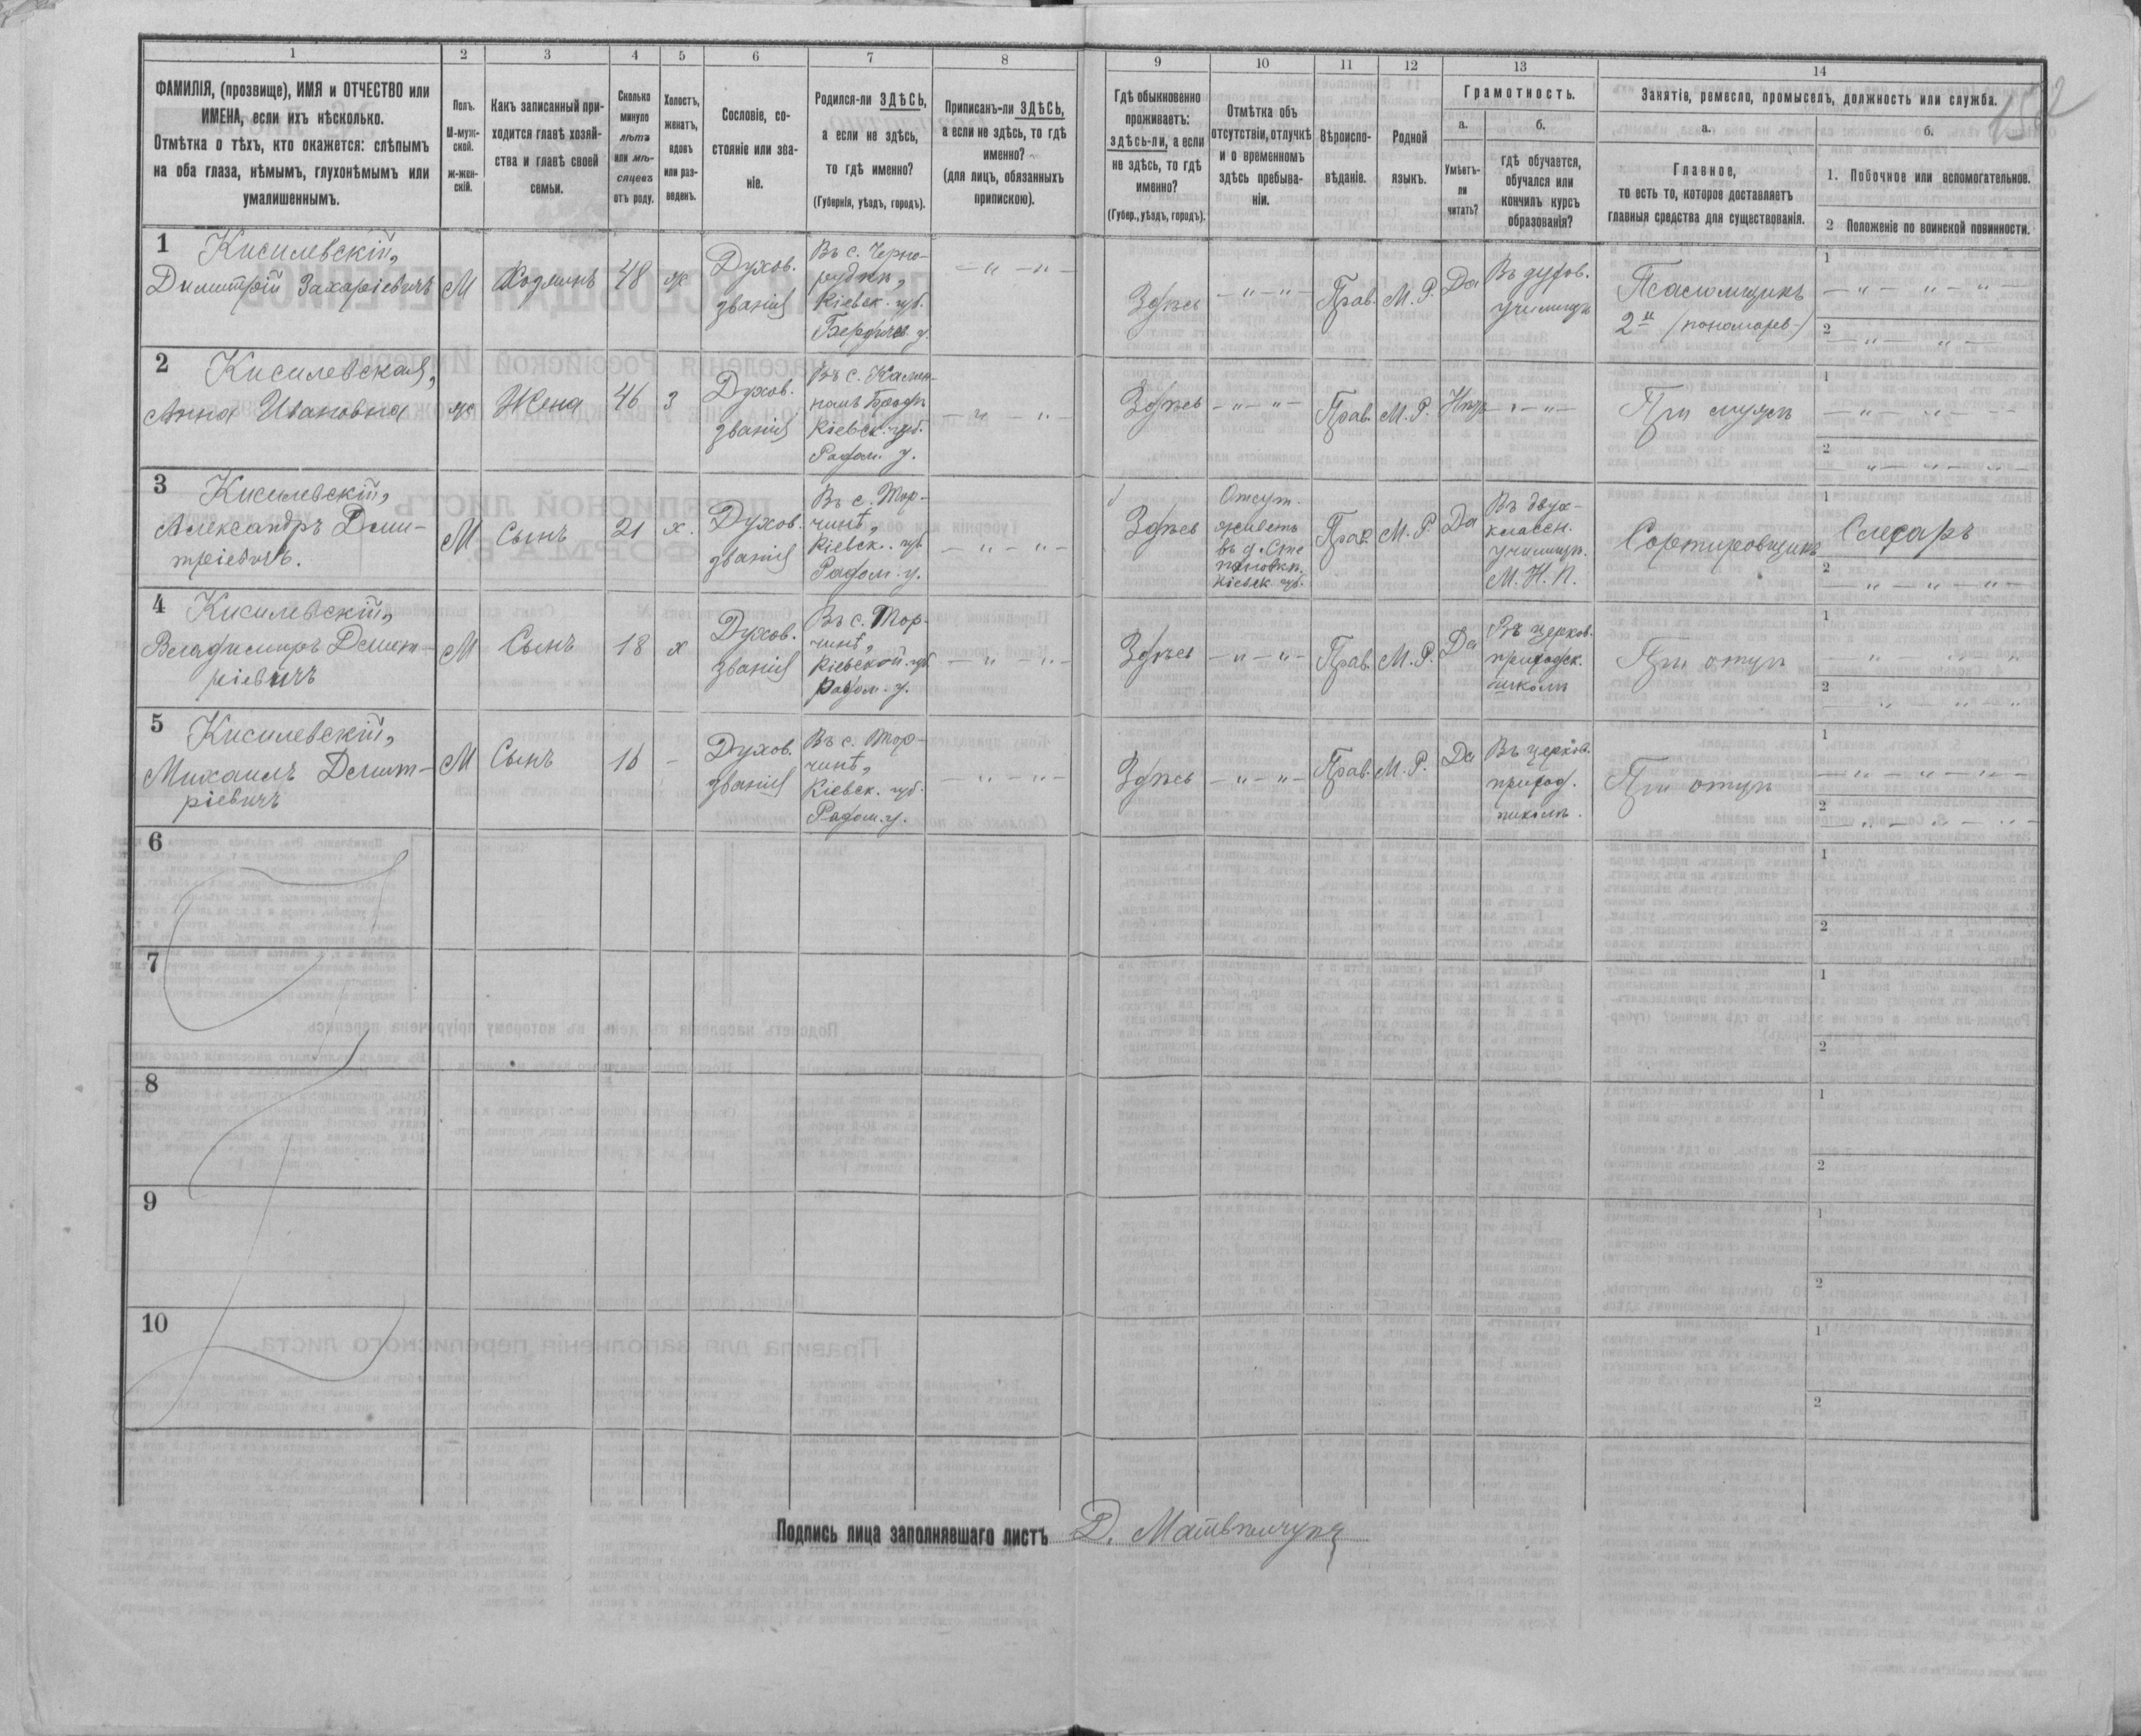 152
1 2 3 4 5 6 7 8 9 10 11 12 13 14
ФАМИЛІЯ, (прозвище), ИМЯ и ОТЧЕСТВО или
ИМЕНА, если ихъ нѣсколько.
Отмѣтка о тѣхъ, кто окажется: слѣпымъ
на оба глаза, нѣмымъ, глухонѣмымъ или
умалишеннымъ.
Полъ.
М-муж-
ской.
Ж-жен-
скій.
Какъ записанный при-
ходится главѣ хозяй-
ства и главѣ своей
семьи.
Сколько
минуло
лѣтъ
или мѣ-
сяцевъ
отъ роду.
Холостъ,
женатъ,
вдовъ
или раз-
веденъ.
Сословіе, со-
стояніе или зва-
ніе.
Родился-ли ЗДѢСЬ,
а если не здѣсь,
то гдѣ именно?
(Губернія, уѣздъ, городъ).
Приписанъ-ли ЗДѢСЬ,
а если не здѣсь, то гдѣ
именно?
(для лицъ, обязанныхъ
припискою).
Гдѣ обыкновенно
проживаетъ:
здѣсь-ли, а если
не здѣсь, то гдѣ
именно?
(Губер., уѣздъ, городъ).
Отмѣтка объ
отсутствіи, отлучкѣ
и о временномъ
здѣсь пребыва-
ніи.
Вѣроиспо-
вѣданіе.
Родной
языкъ.
Грамотность.
а.
Умѣетъ-
ли
читать?
б.
гдѣ обучается,
обучался или
кончилъ курсъ
образованія?
Занятіе, ремесло, промыселъ, должность или служба.
а.
Главное,
то есть то, которое доставляетъ
главныя средства для существованія.
б.
1. Побочное или вспомогательное.
2 Положеніе по воинской повинности.
1 Кисилевскій,
Димитрій Захаріевичъ
М
Хозяинъ
48
ж
Духов.
званія
Въ с. Черно-
рудки,
Кіевск. губ.
Бердичев. у.
— „ — „ —
Здѣсь
— „ — „ —
Прав.
М. Р.
Да
Въ духов.
училищѣ
Псаломщикъ
2й (пономарь)
1
— „ — „ — „ —
2
— „ — „ —
2 Кисилевская,
Анна Ивановна
ж
Жена
46
з
Духов.
званія
Въ с. Камен-
номъ Бродѣ
Кіевск. губ.
Радом. у.
— „ — „ —
Здѣсь
— „ — „ —
Прав.
М. Р.
Нѣтъ
— „ — „ —
При мужѣ
1
— „ — „ — —
2
— „ — „ — „ —
3 Кисилевскій,
Александръ Дми-
тріевичъ.
М
Сынъ
21
х.
Духов.
званія
Въ с. Тор-
чинѣ,
Кіевск. губ.
Радом. у.
— „ — „ —
Здѣсь
Отсут.
живетъ
въ д. Сте
пановкѣ.
Кіевск. губ.
Прав.
М. Р.
Да
Въ двух-
классн.
училищѣ.
М. Н. П.
Сортировщикъ
1
Слесарь
2
— „ — „ — „ —
4 Кисилевскій,
Владимиръ Димит-
ріевичъ
М
Сынъ
18
х
Духов.
званія
Въ с. Тор-
чинѣ,
Кіевской губ.
Радом. у.
— „ — „ —
Здѣсь
— „ — „ —
Прав.
М. Р.
Да
Въ церков.
приходск.
школѣ
При отцѣ
1
— „ — „ — „
2
— „ — „ — „
5 Кисилевскій,
Михаилъ Димит-
ріевичъ
М
Сынъ
-
Духов.
званія
Въ с. Тор-
чинѣ,
Кіевск. губ.
Радом. у.
— „ — „ —
Здѣсь
— „ — „ —
Прав.
М. Р.
Да
Въ церков.
приход.
школѣ.
При отцѣ
1
— „ — „ — „ —
2
— „ — „ — „ —
6
1
2
7
1
2
8
1
2
9
1
2
10
1
2
Подпись лица заполнявшаго листъ Д. Матвѣйчукъ